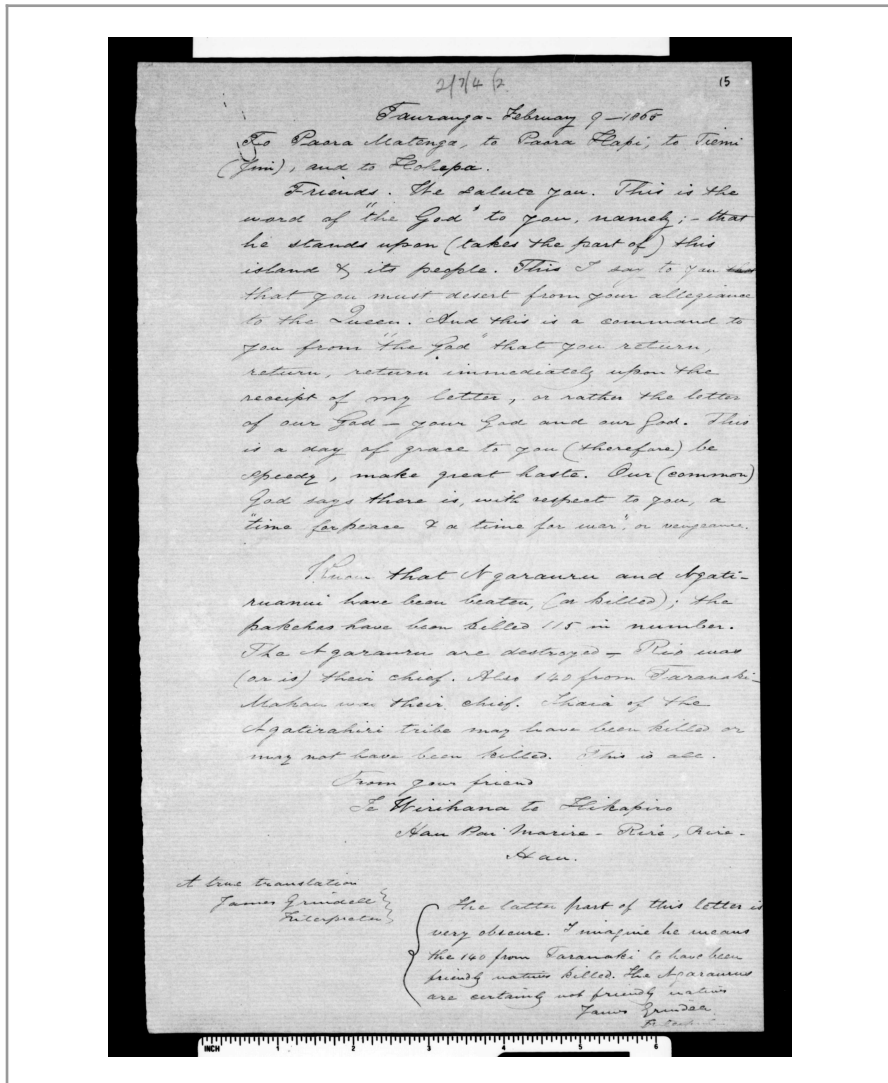 2/7/4/2
15
Tauranga - February 9 - 1865
To Paora Matenga, to Paora Hapi, to Tiemi
(Jim), and to Hohepa.
Friends. We salute you. This is the
word of "the God" to you, namely; - that
he stands upon (takes the part of) this
island & its people. This I say to you
that you must desert from your allegiance
to the Queen. And this is a command to
you from "the God" that you return,
return, return immediately upon the
receipt of my letter, or rather the letter
of our God - your God and our God. This
is a day of grace to you (therefore) be
speedy, make great haste. Our (common)
God says there is, with respect to you, a
"time for peace & a time for war", or vengeance.
Know that Ngarauru and Ngati-
ruanui have been beaten, (or killed); the
pakehas have been killed 115 in number.
The Ngarauru are destroyed - Rio was
(or is) their chief. Also 140 from Taranaki -
Mahau was their chief. Ihaia of the
Ngatirahiri tribe may have been killed or
may not have been killed. This is all.
From your friend
Te Wirihana to Hikapiro
Hau Pai Marire - Rire, Rire -
Hau.
A true translation
James Grindell
Interpreter
The latter part of this letter is
very obscure. I imagine he means
the 140 from Taranaki to have been
friendly natives killed. The Ngaraurus
are certainly not friendly natives
James Grindell
INCH 1 2 3 4 5 6